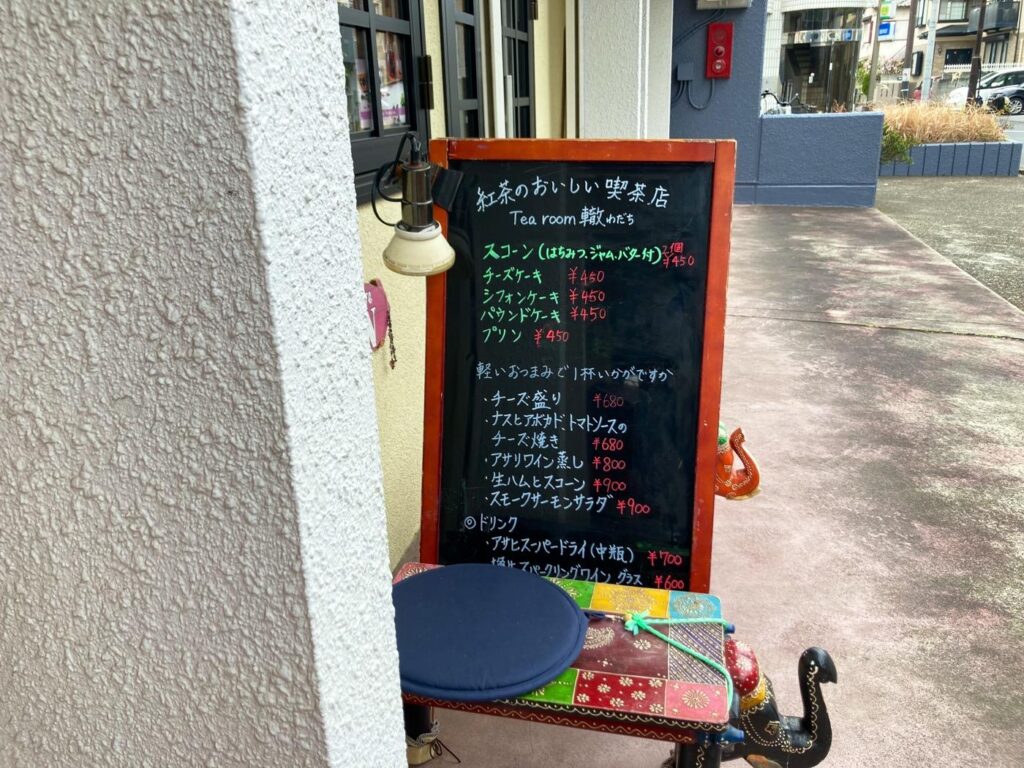 紅茶のおいしい喫茶店
Tea room 轍わだち
スコーン(はちみつ、ジャム、バター付) 2個 ¥450
チーズケーキ ¥450
シフォンケーキ ¥450
パウンドケーキ ¥450
プリン ¥450
軽いおつまみで1杯いかがですか
・チーズ盛り ¥680
・ナスとアボカド、トマトソースの
チーズ焼き ¥680
・アサリワイン蒸し ¥800
・生ハムとスコーン ¥900
・スモークサーモンサラダ ¥900
◎ドリンク
・アサヒスーパードライ(中瓶) ¥700
スパークリングワイン グラス ¥600